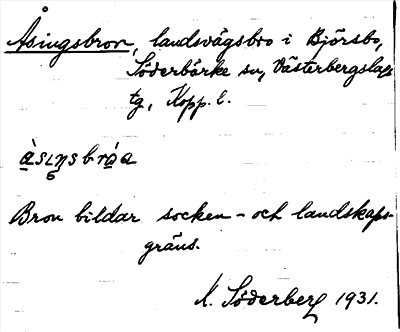 Åsingsbron, landsvägsbro i Björsbo,
Söderbärke sn, Västerbergslags
tg, Kopp. l.
àsıŋsbróa
Bron bildar socken- och landskaps-
gräns.
N. Söderberg 1931.